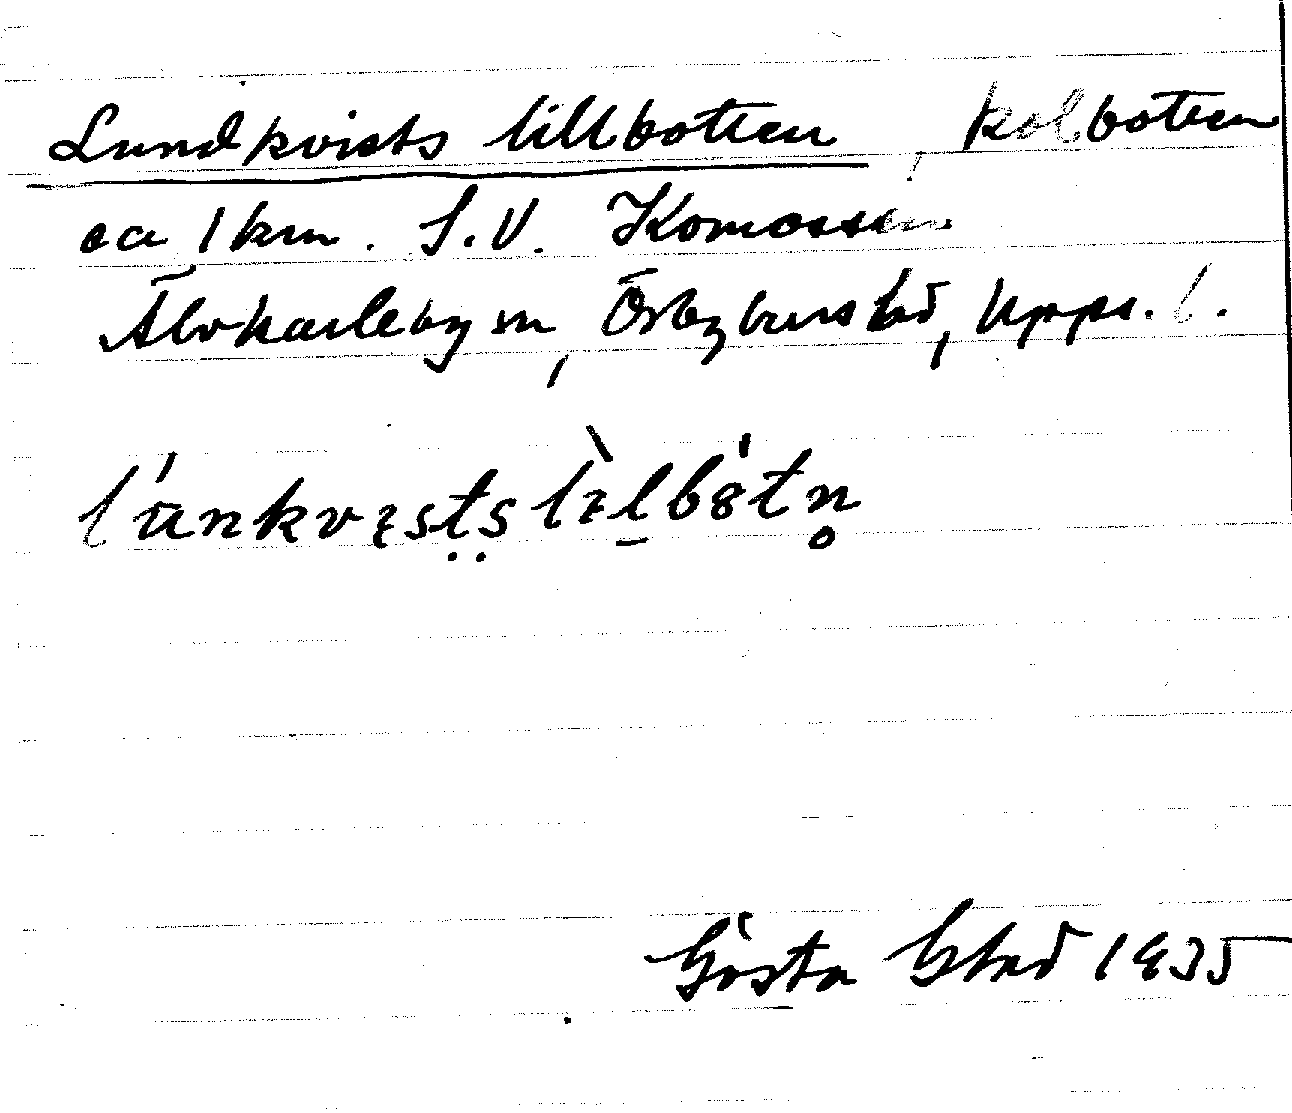 Lundkvists lillbotten, kolbotten
ca 1 km. S.V. Komossen
Älvkarleby sn, Örbyhus hd, Upps. l.
Gösta 1935